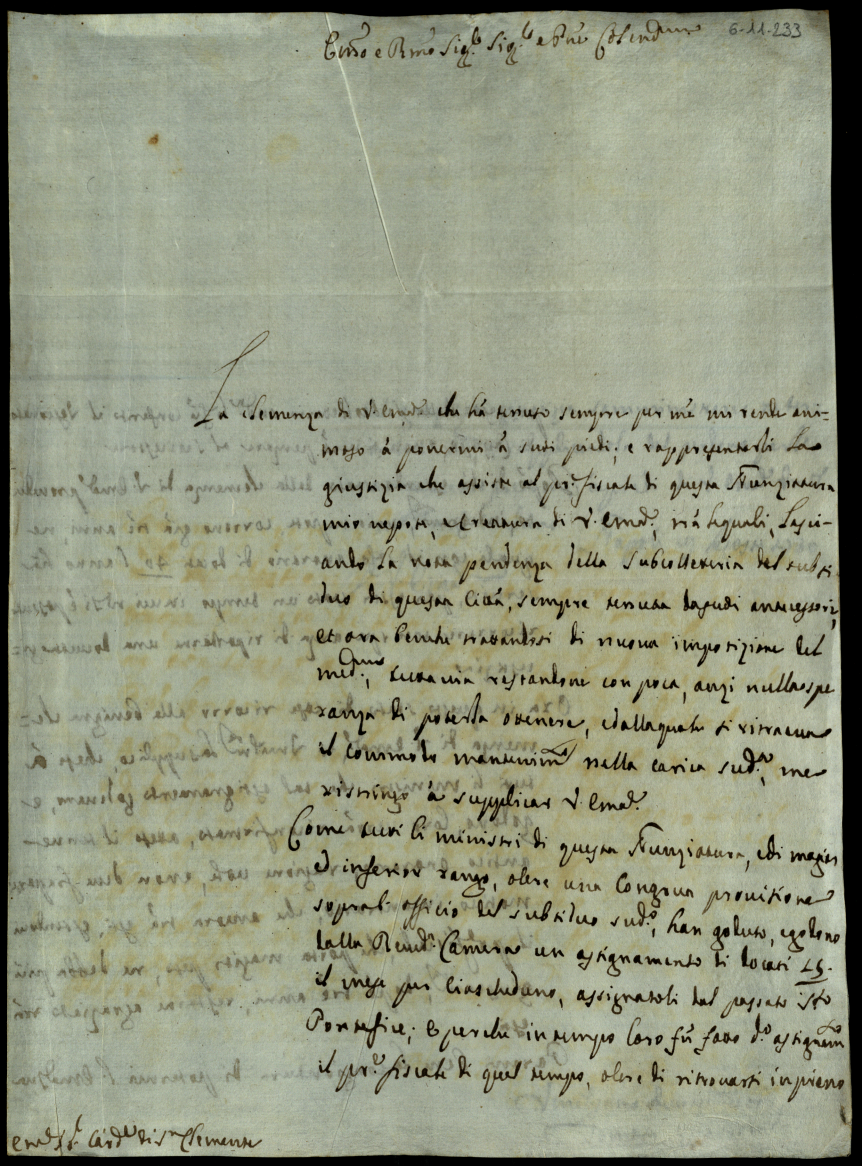 6-11-233
Em̃o e Rm̃o Sig.re Sig.re e Pñe Colend.mo
La clemenza di V. Em.a che hà tenuto sempre per mè mi rende ani-
moso à ponermi à suoi piedi; e rappresentarli la
giustizia che assiste al pr.e fiscale di questa Nunziatura
mio nepote, e Creatura di V. Em.a; trà lequali, lasci-
ando la nota pendenza della Subcolletteria del sussi
dio di questa Città, sempre tenuta dasuoi antecessori,
et ora benche trattandosi di nuova imposizione del
med.mo, tuttavia restandone con poca, anzi nulla spe
ranza di poterla ottenere, e dallaquale si ritraeva
il commodo mantenim.to nella carica sud.a, me
ristringo à supplicar V. Em.a
Come tutti li ministri di questa Nunziatura, e di magior
ed inferior rango, oltre una congrua provisione
sopra l'officio del sussidio sud.o, han goduto, e godono
dalla Reud.a Camera un assignamento di docati 15.
il mese per ciascheduno, assignatoli dal passato
Pontefice; E perche in tempo loro fù fatto d.o assignam.to
il pr.e fiscale di quel tempo, oltre di ritrovarsi in pieno
Em.o S.r Card.le di S.n Clemente